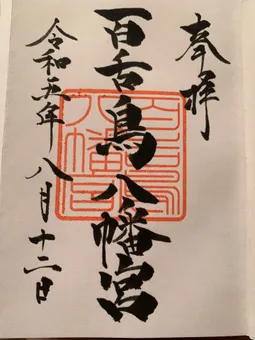 奉拝
百舌鳥八幡宮
令和五年八月十二日
百舌鳥八幡宮